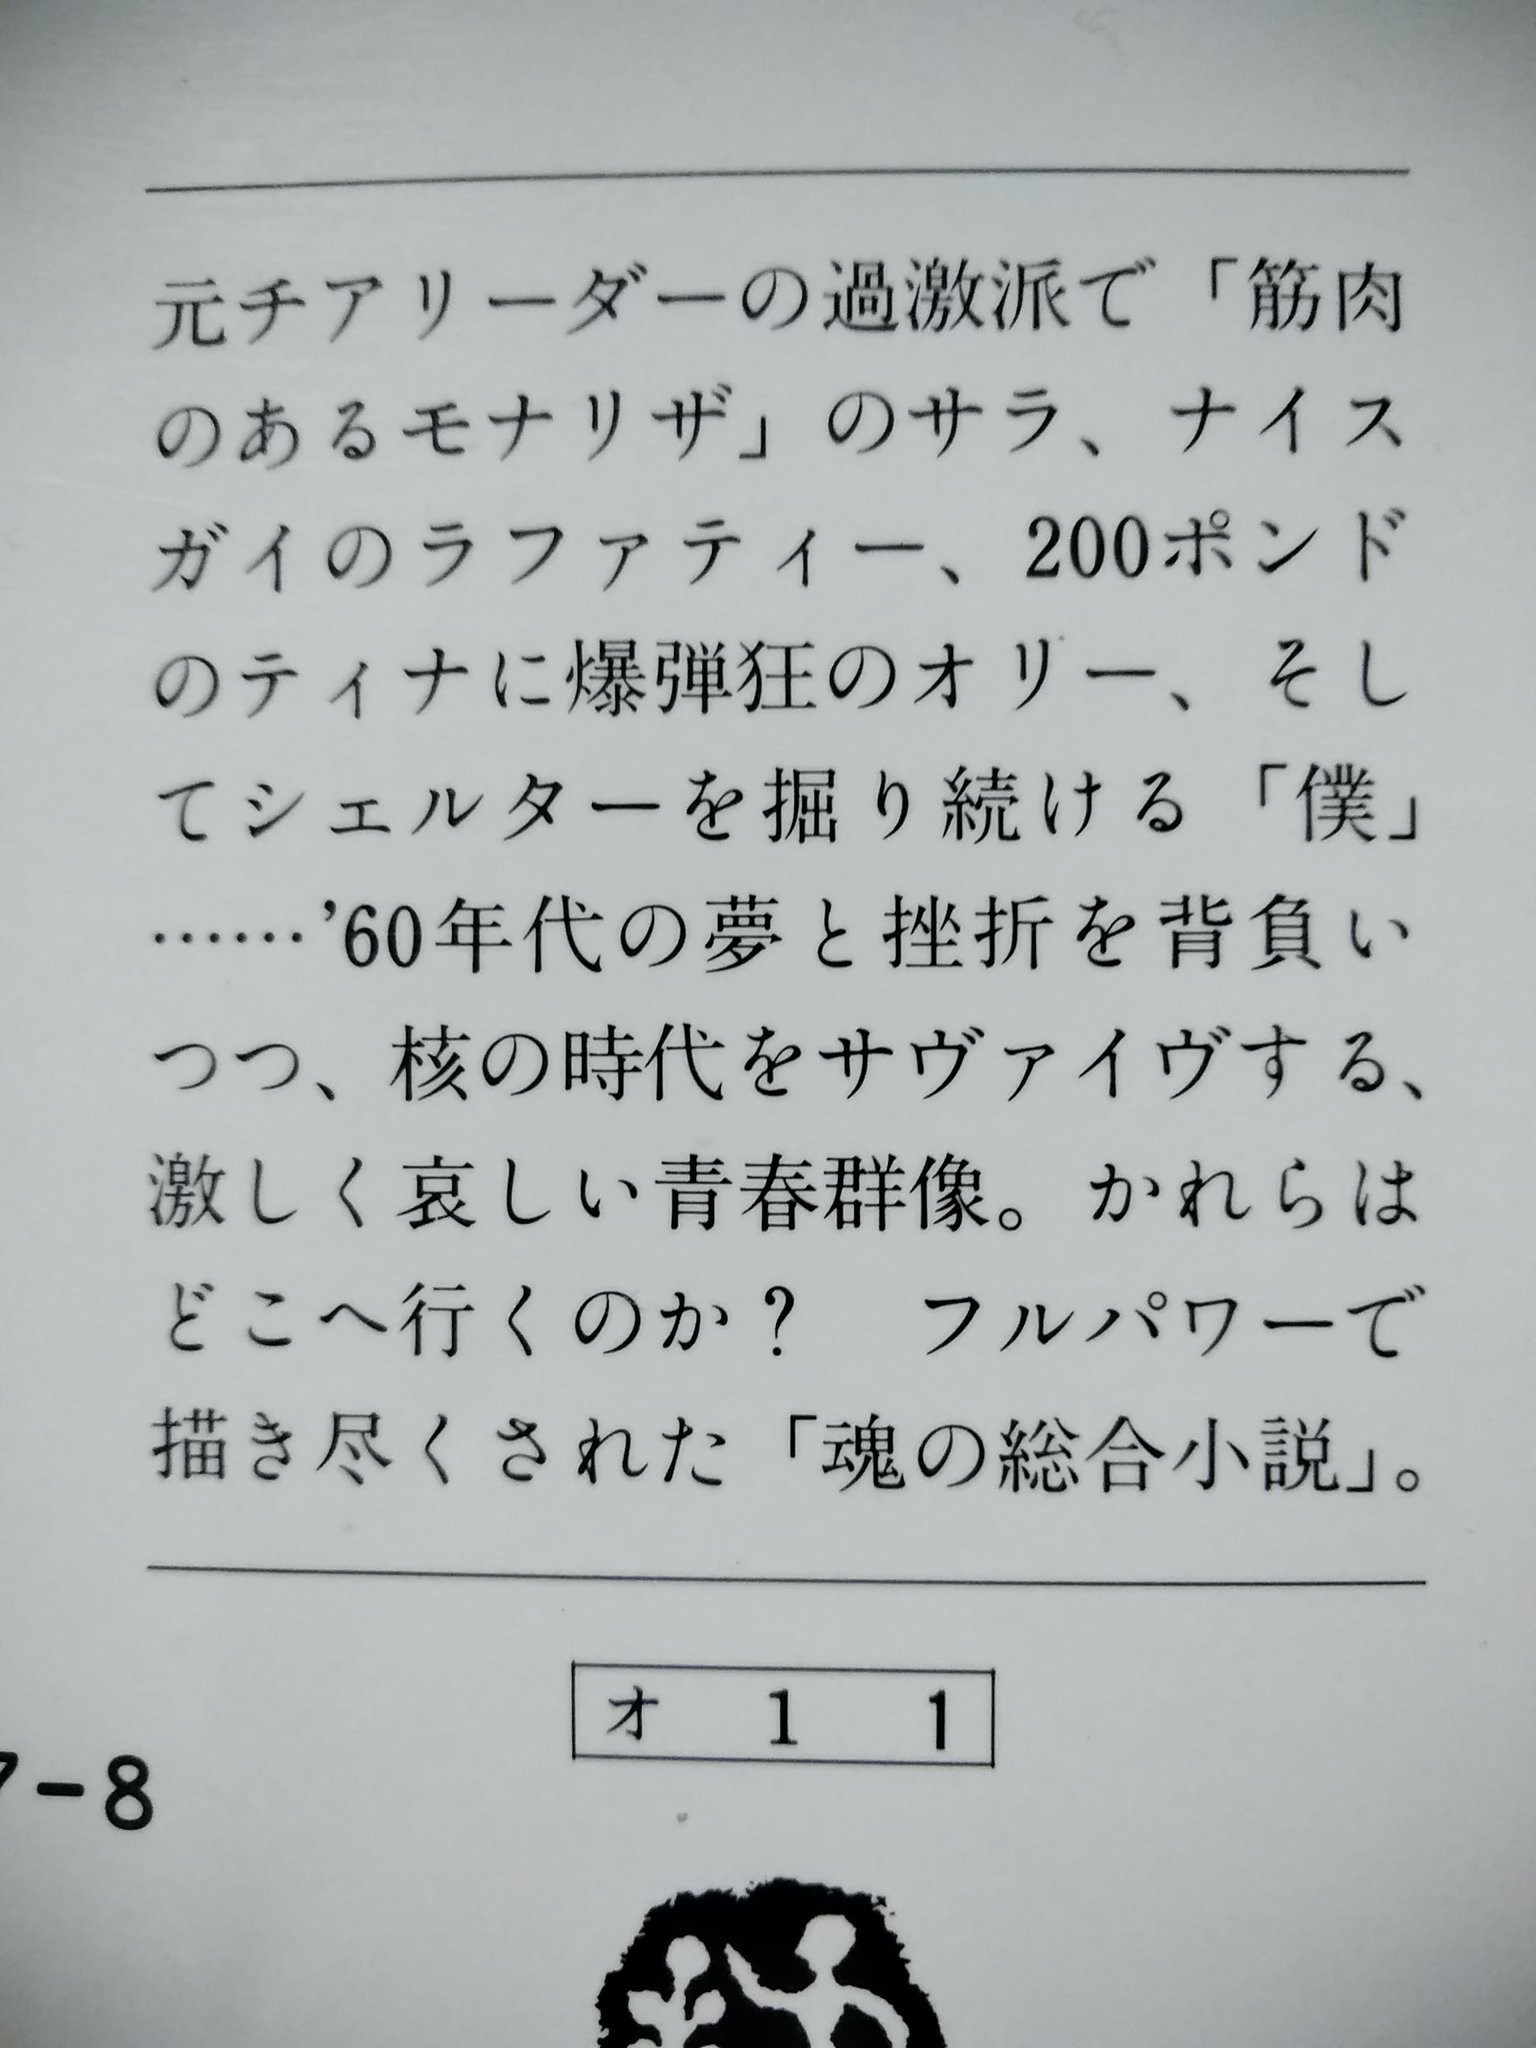 元チアリーダーの過激派で「筋肉
のあるモナリザ」のサラ、ナイス
ガイのラファティー、200ポンド
のティナに爆弾狂のオリー、そし
てシェルターを掘り続ける「僕」
……’60年代の夢と挫折を背負い
つつ、核の時代をサヴァイヴする、
激しく哀しい青春群像。かれらは
どこへ行くのか？　フルパワーで
描き尽くされた「魂の総合小説」。
オ 1 1
-8